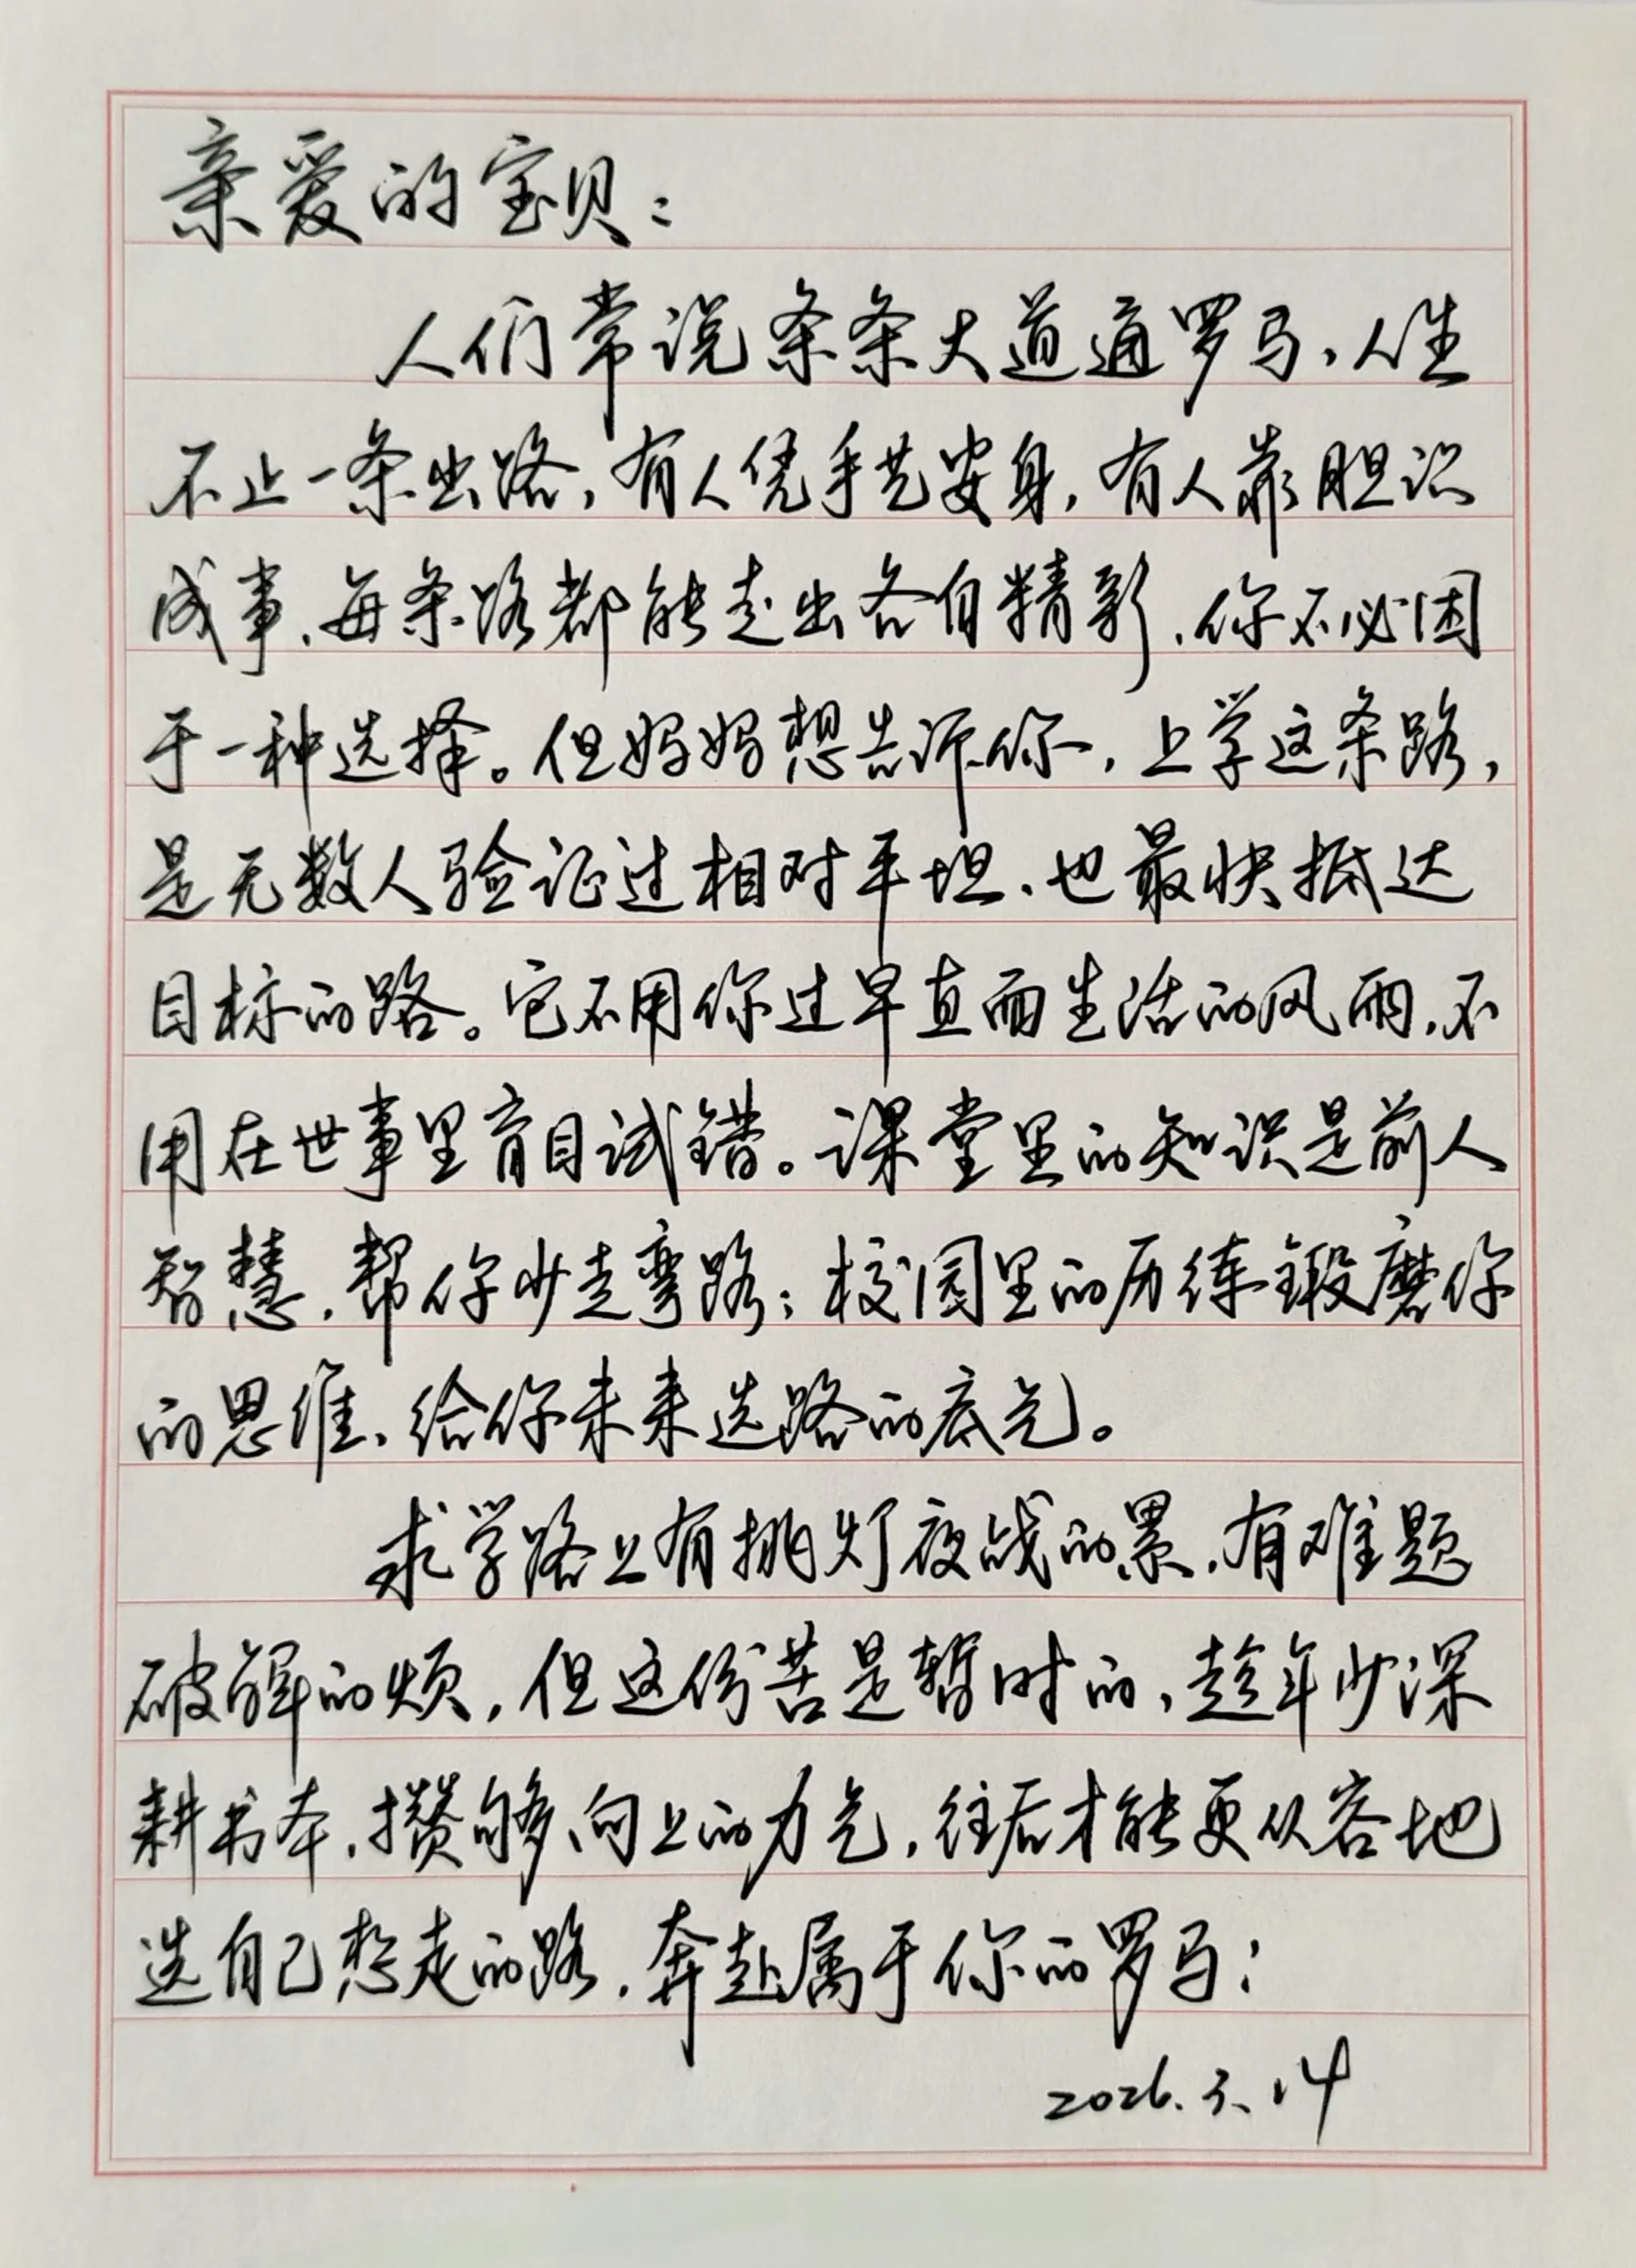 亲爱的宝贝：
人们常说条条大道通罗马，人生
不止一条出路，有人凭手艺安身，有人靠胆识
成事，每条路都能走出各自精彩，你不必困
于一种选择。但妈妈想告诉你，上学这条路，
是无数人验证过相对平坦、也最快抵达
目标的路。它不用你过早直面生活的风雨，不
用在世事里盲目试错。课堂里的知识是前人
智慧，帮你少走弯路；校园里的历练锻磨你
的思维、给你未来选路的底气。
求学路上有挑灯夜战的累，有难题
破解的烦，但这份苦是暂时的，趁年少深
耕书本，攒够向上的力气，往后才能更从容地
选自己想走的路，奔赴属于你的罗马！
2026.3.14